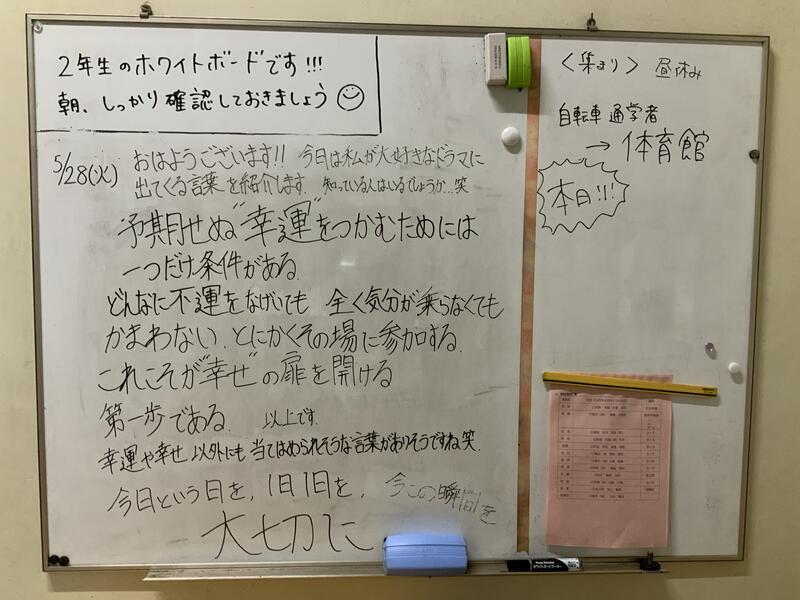 2年生のホワイトボードです!!!
朝、しっかり確認しておきましょう
5/28(火)
おはようございます!! 今日は私が大好きなドラマに
出てくる言葉を紹介します. 知っている人はいるでしょうか…笑
予期せぬ"幸運"をつかむためには
一つだけ条件がある.
どんなに不運をなげいても 全く気分が乗らなくても
かまわない. とにかくその場に参加する.
これこそが"幸せ"の扉を開ける
第一歩である. 以上です.
幸運や幸せ 以外にも 当てはめられそうな言葉がありそうですね笑.
今日という日を, 1日1日を, 今この瞬間を
大切に
<集まり> 昼休み
自転車通学者
→ 体育館
本日!!